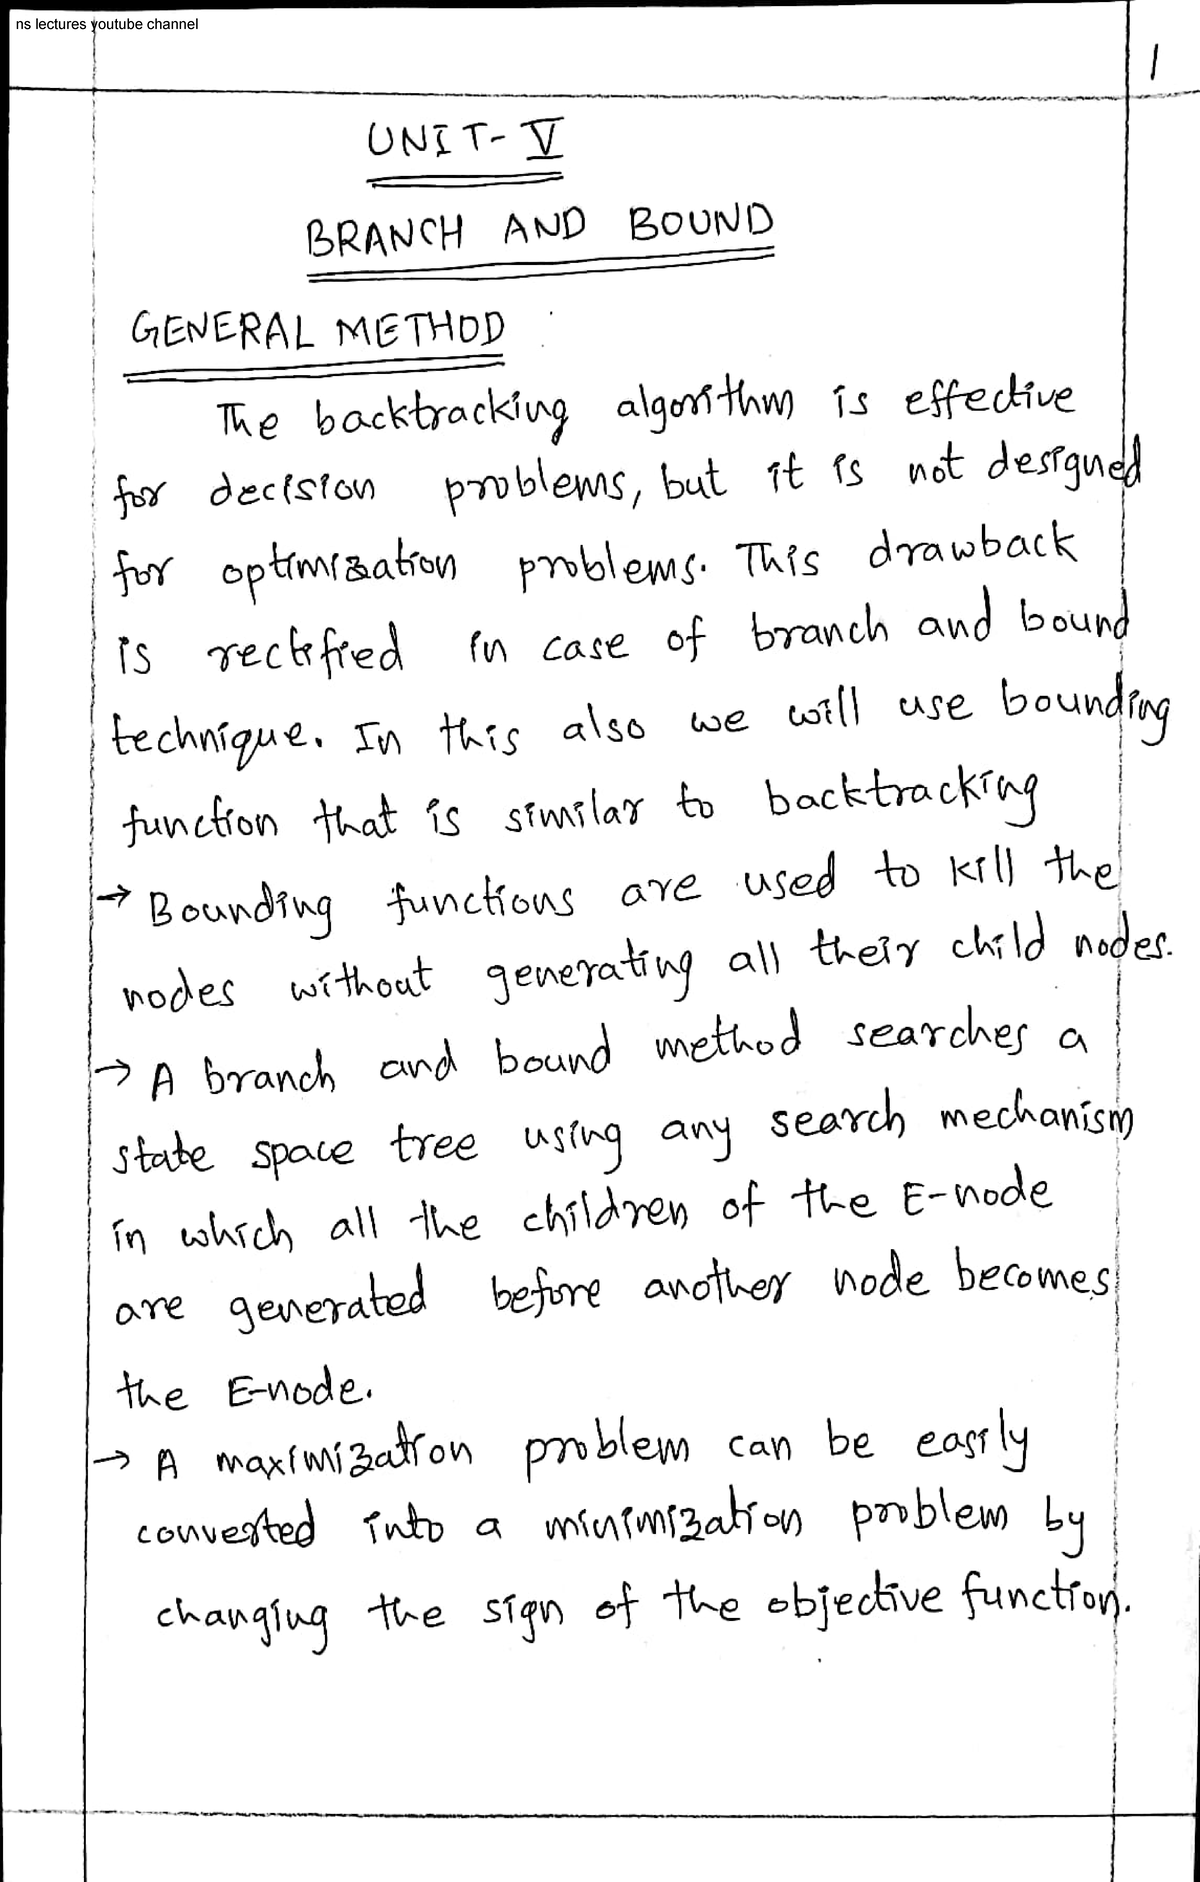 ns lectures youtube channel
1
UNIT-V
BRANCH AND BOUND
GENERAL METHOD
The backtracking algorithm is effective
for decision problems, but it is not designed
for optimization problems. This drawback
is rectified in case of branch and bound
technique. In this also we will use bounding
function that is similar to backtracking
→ Bounding functions are used to kill the
nodes without generating all their child nodes.
→ A branch and bound method searches a
state space tree using any search mechanism
in which all the children of the E-node
are generated before another node becomes
the E-node.
→ A maximization problem can be easily
converted into a minimization problem by
changing the sign of the objective function.